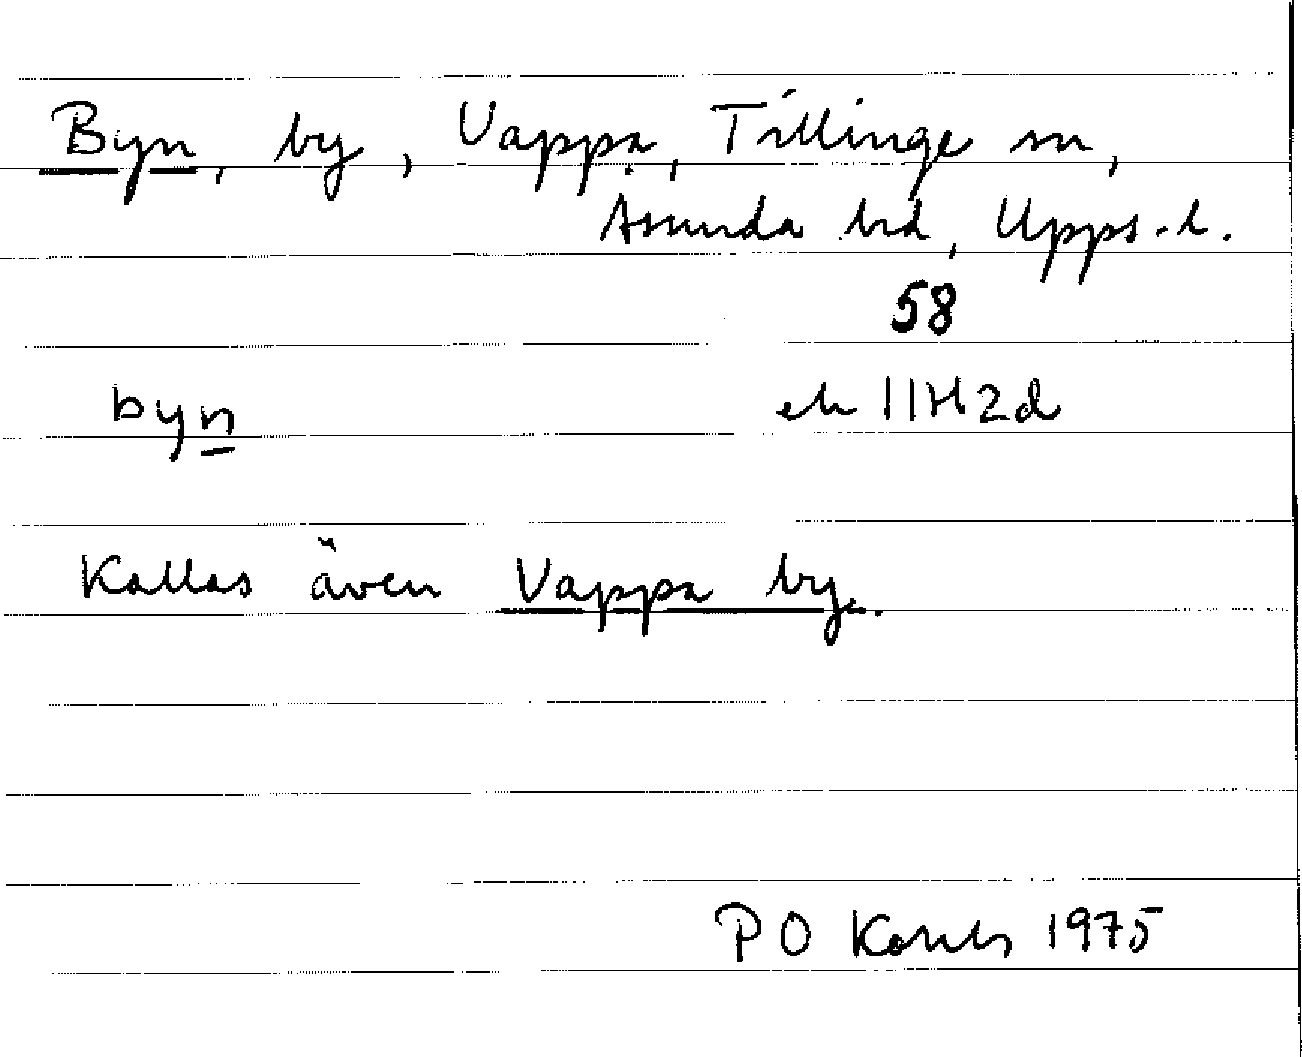 Byn, by, Vappa, Tillinge sn,
Åsunda hd, Upps. l.
58
byn
ek 11H2d
Kallas även Vappa by.
P O 1975